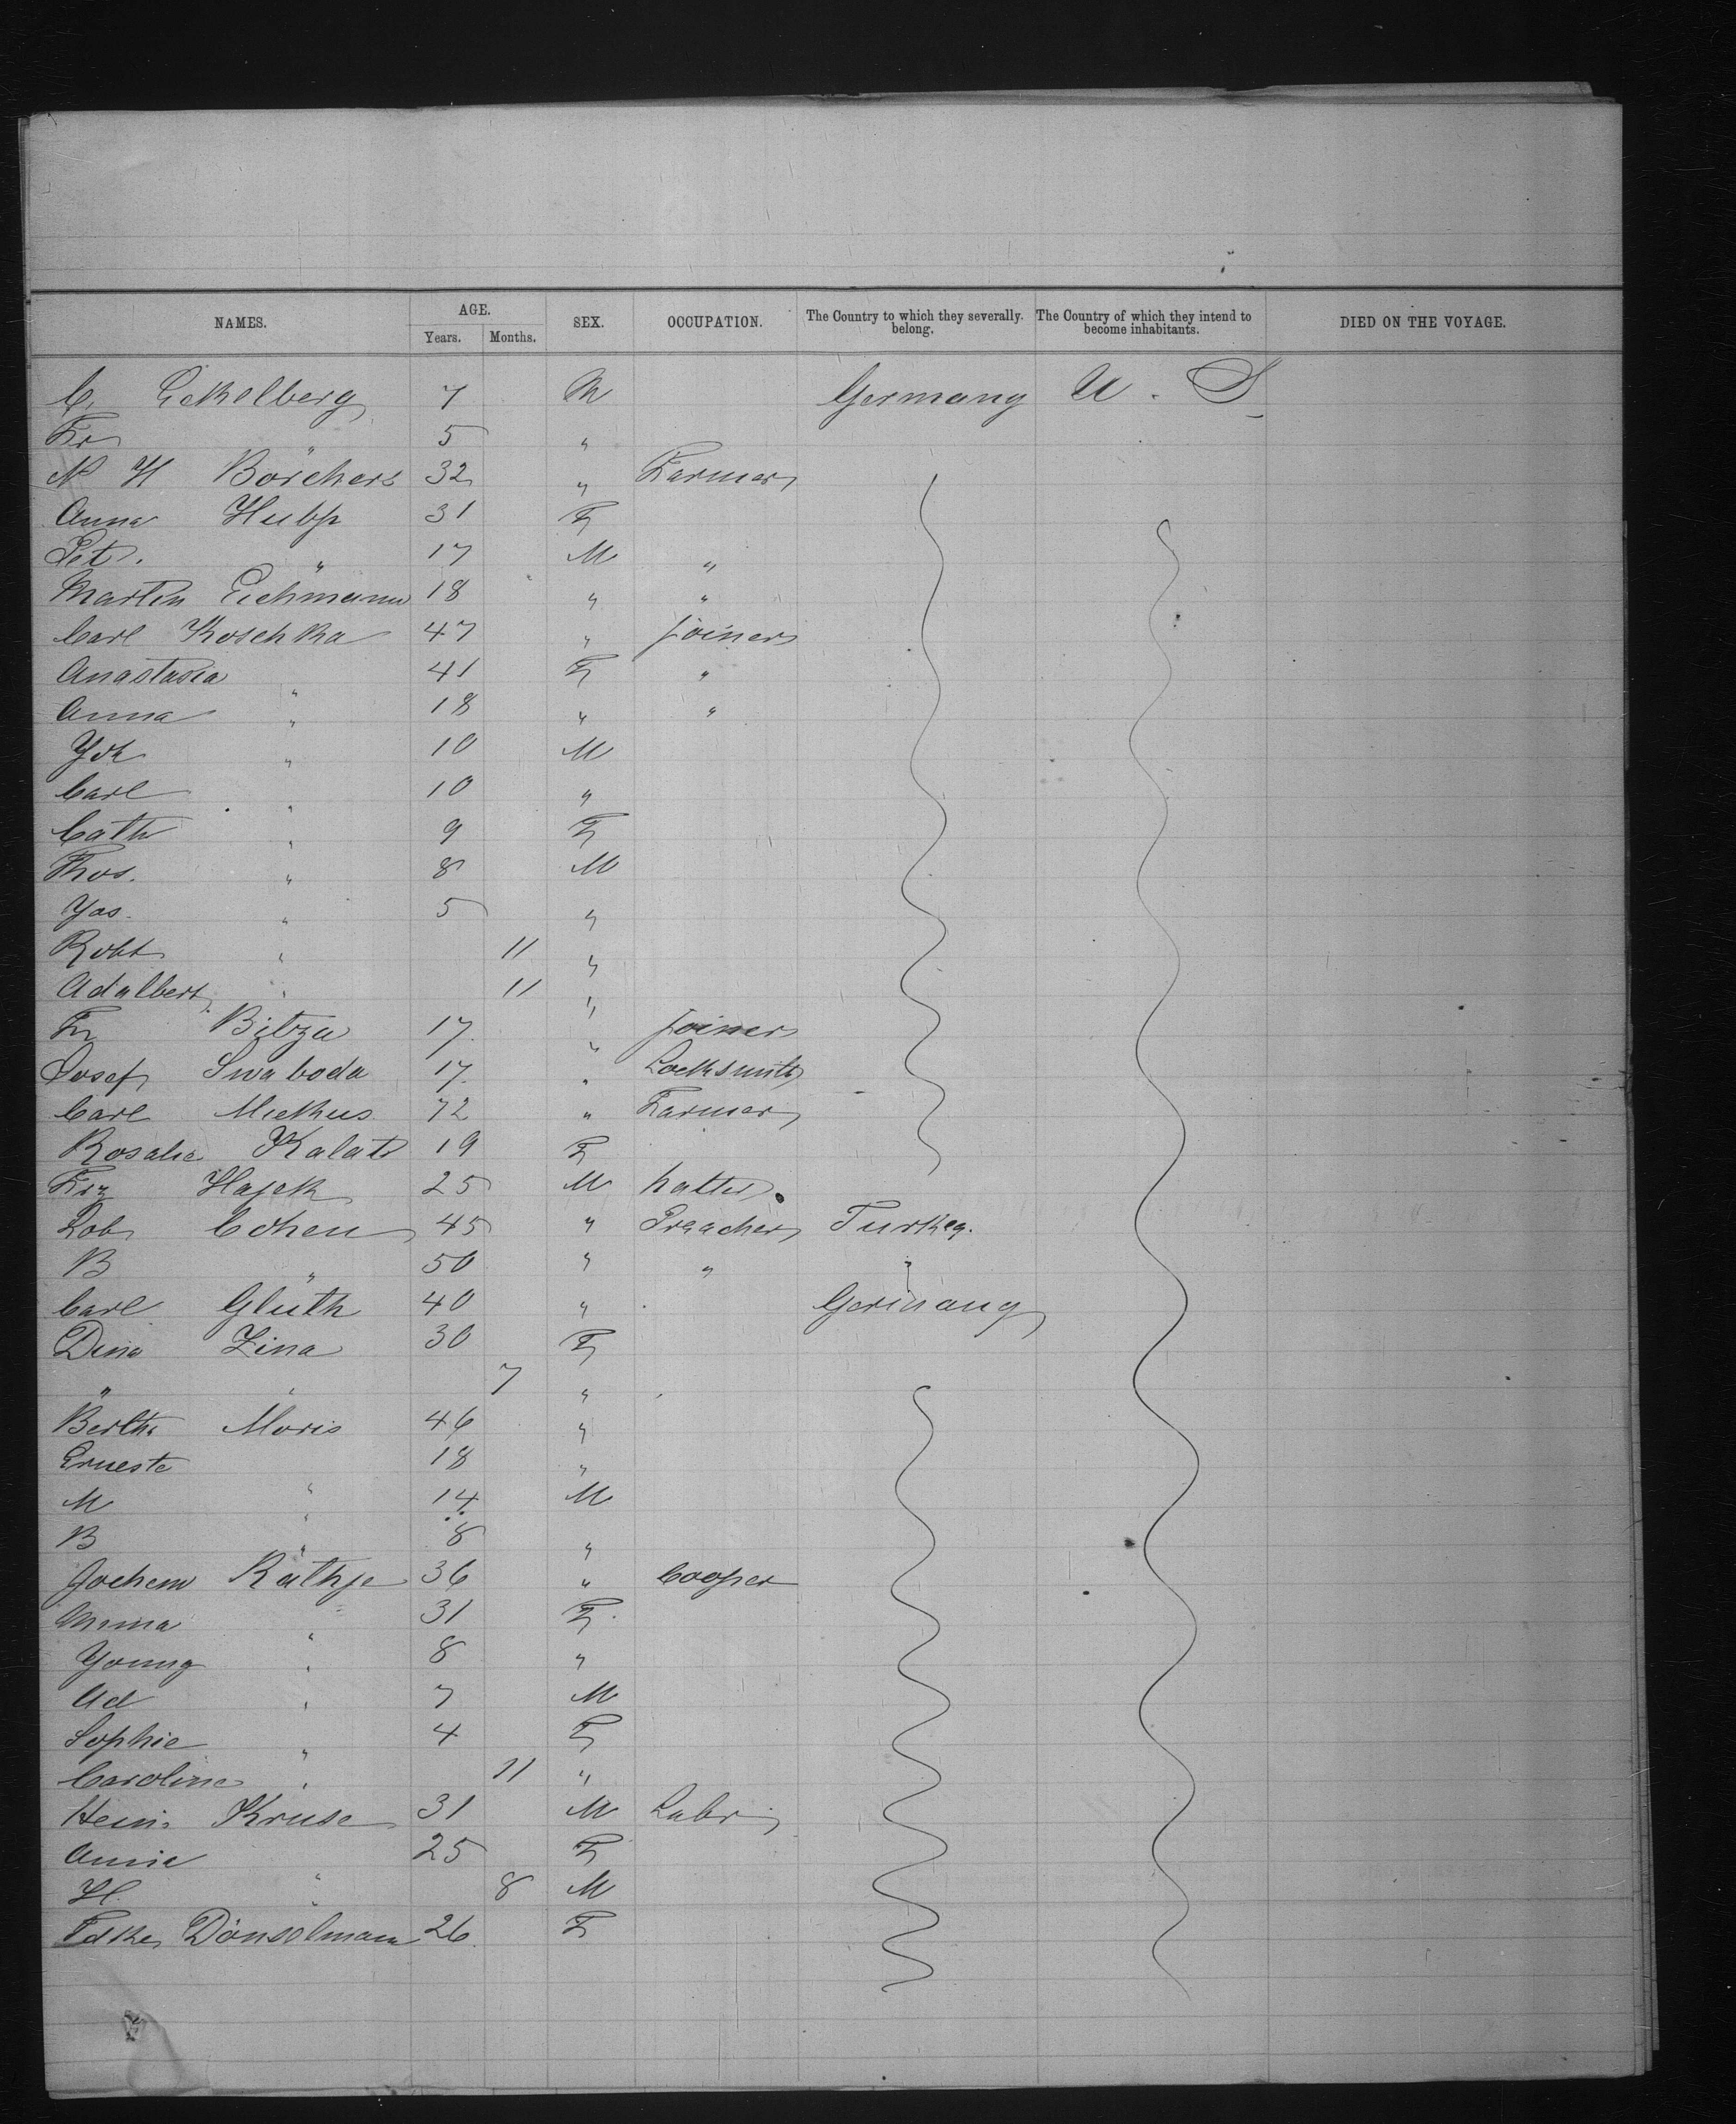 NAMES. AGE. SEX. OCCUPATION. The Country to which they severally belong. The Country of which they intend to become inhabitants. DIED ON THE VOYAGE.
Years. Months.
C. Eckelberg 7 M Germany U. S
Fr " 5 "
N H Borchers 32 " Farmer
Anna Hubp 31 F
Pet. " 17 M "
Martin Eichmann 18 " "
Carl Koschka 47 " joiner
Anastasia " 41 F "
Anna " 18 " "
Yok " 10 M
Carl " 10 "
Cath " 9 F
Thos. " 8 M
Yos. " 5 "
Robt " 11 "
Adalbert " 11 "
Fr Bitza 17 " joiner
Josef Swaboda 17 " Locksmith
Carl Mickus 72 " Farmer
Rosalie Kalat 19 F
Frz Hajek 25 M hatter
Lob Cohen 45 " Preacher Turkey.
B " 50 " " "
Carl Glüth 40 " Germany
Dina Zina 30 F
" " 7 "
Berth. Moris 46 "
Erneste " 18 "
M " 14 M
B " 8 "
Jochem Räthje 36 " Cooper
Anna " 31 F
Young " 8 "
Ad " 7 M
Sophie " 4 F
Caroline " 11 "
Hein. Kruse 31 M Labr
Annie " 25 F
H. " 8 M
Dönselmann 26 F